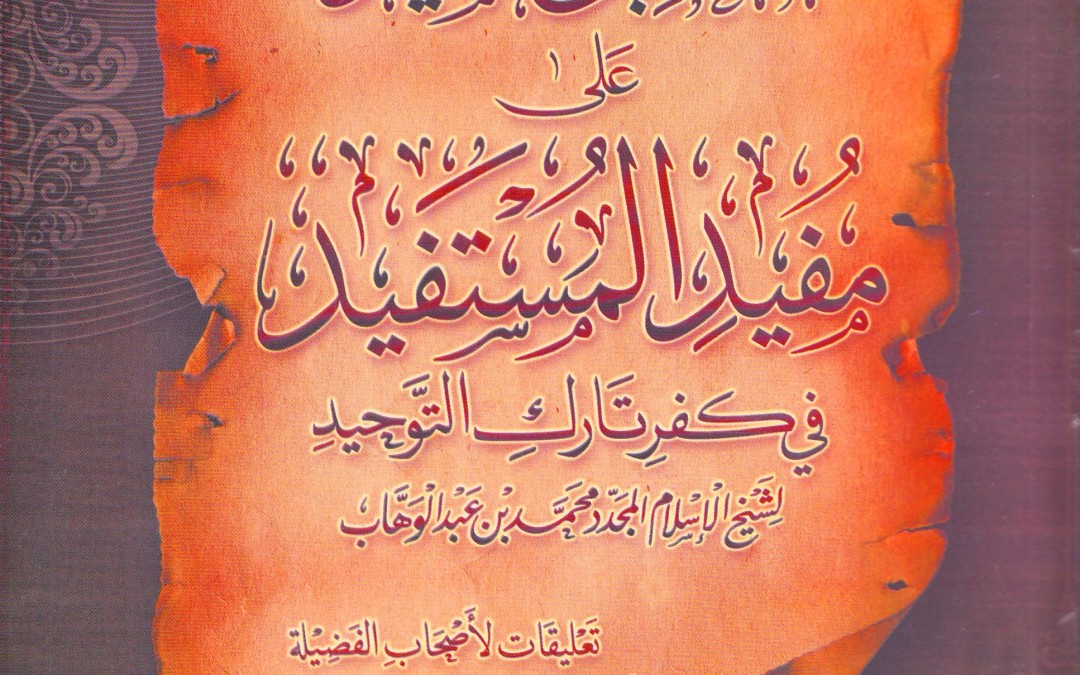 عَلى
مُفِيْدِ المُسْتَفِيْد
في كفرِ تَاركِ التَّوحيدِ
لِشَيْخِ الإِسْلَامِ المجَدّد محمَّد بْن عَبْد الوَهَّاب
تَعْليقَات لأَصْحَابِ الفَضِيْلة